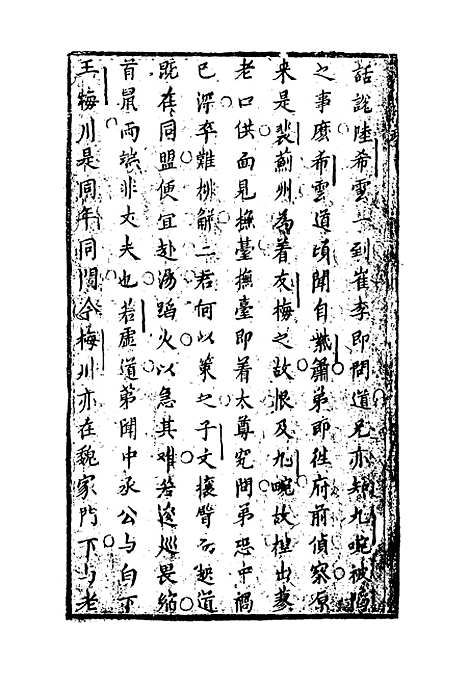 話說陸希雲一到崔李即問道兄亦知九畹被陷
之事麽希雲道頃聞自戴蕭弟即徃府前偵察原
来是裴薊州為着友梅之故恨及九畹故捏出蓼
老口供面見撫臺撫臺即着太尊究問弟恐中禍
已深卒難排解二君何以策之子文攘臂而趨道
既在同盟便宜赴湯蹈火以急其难若逡巡畏縮
首鼠两端非丈夫也若虛道弟聞中丞公与白下
王梅川是同年同門今梅川亦在魏家門下与老